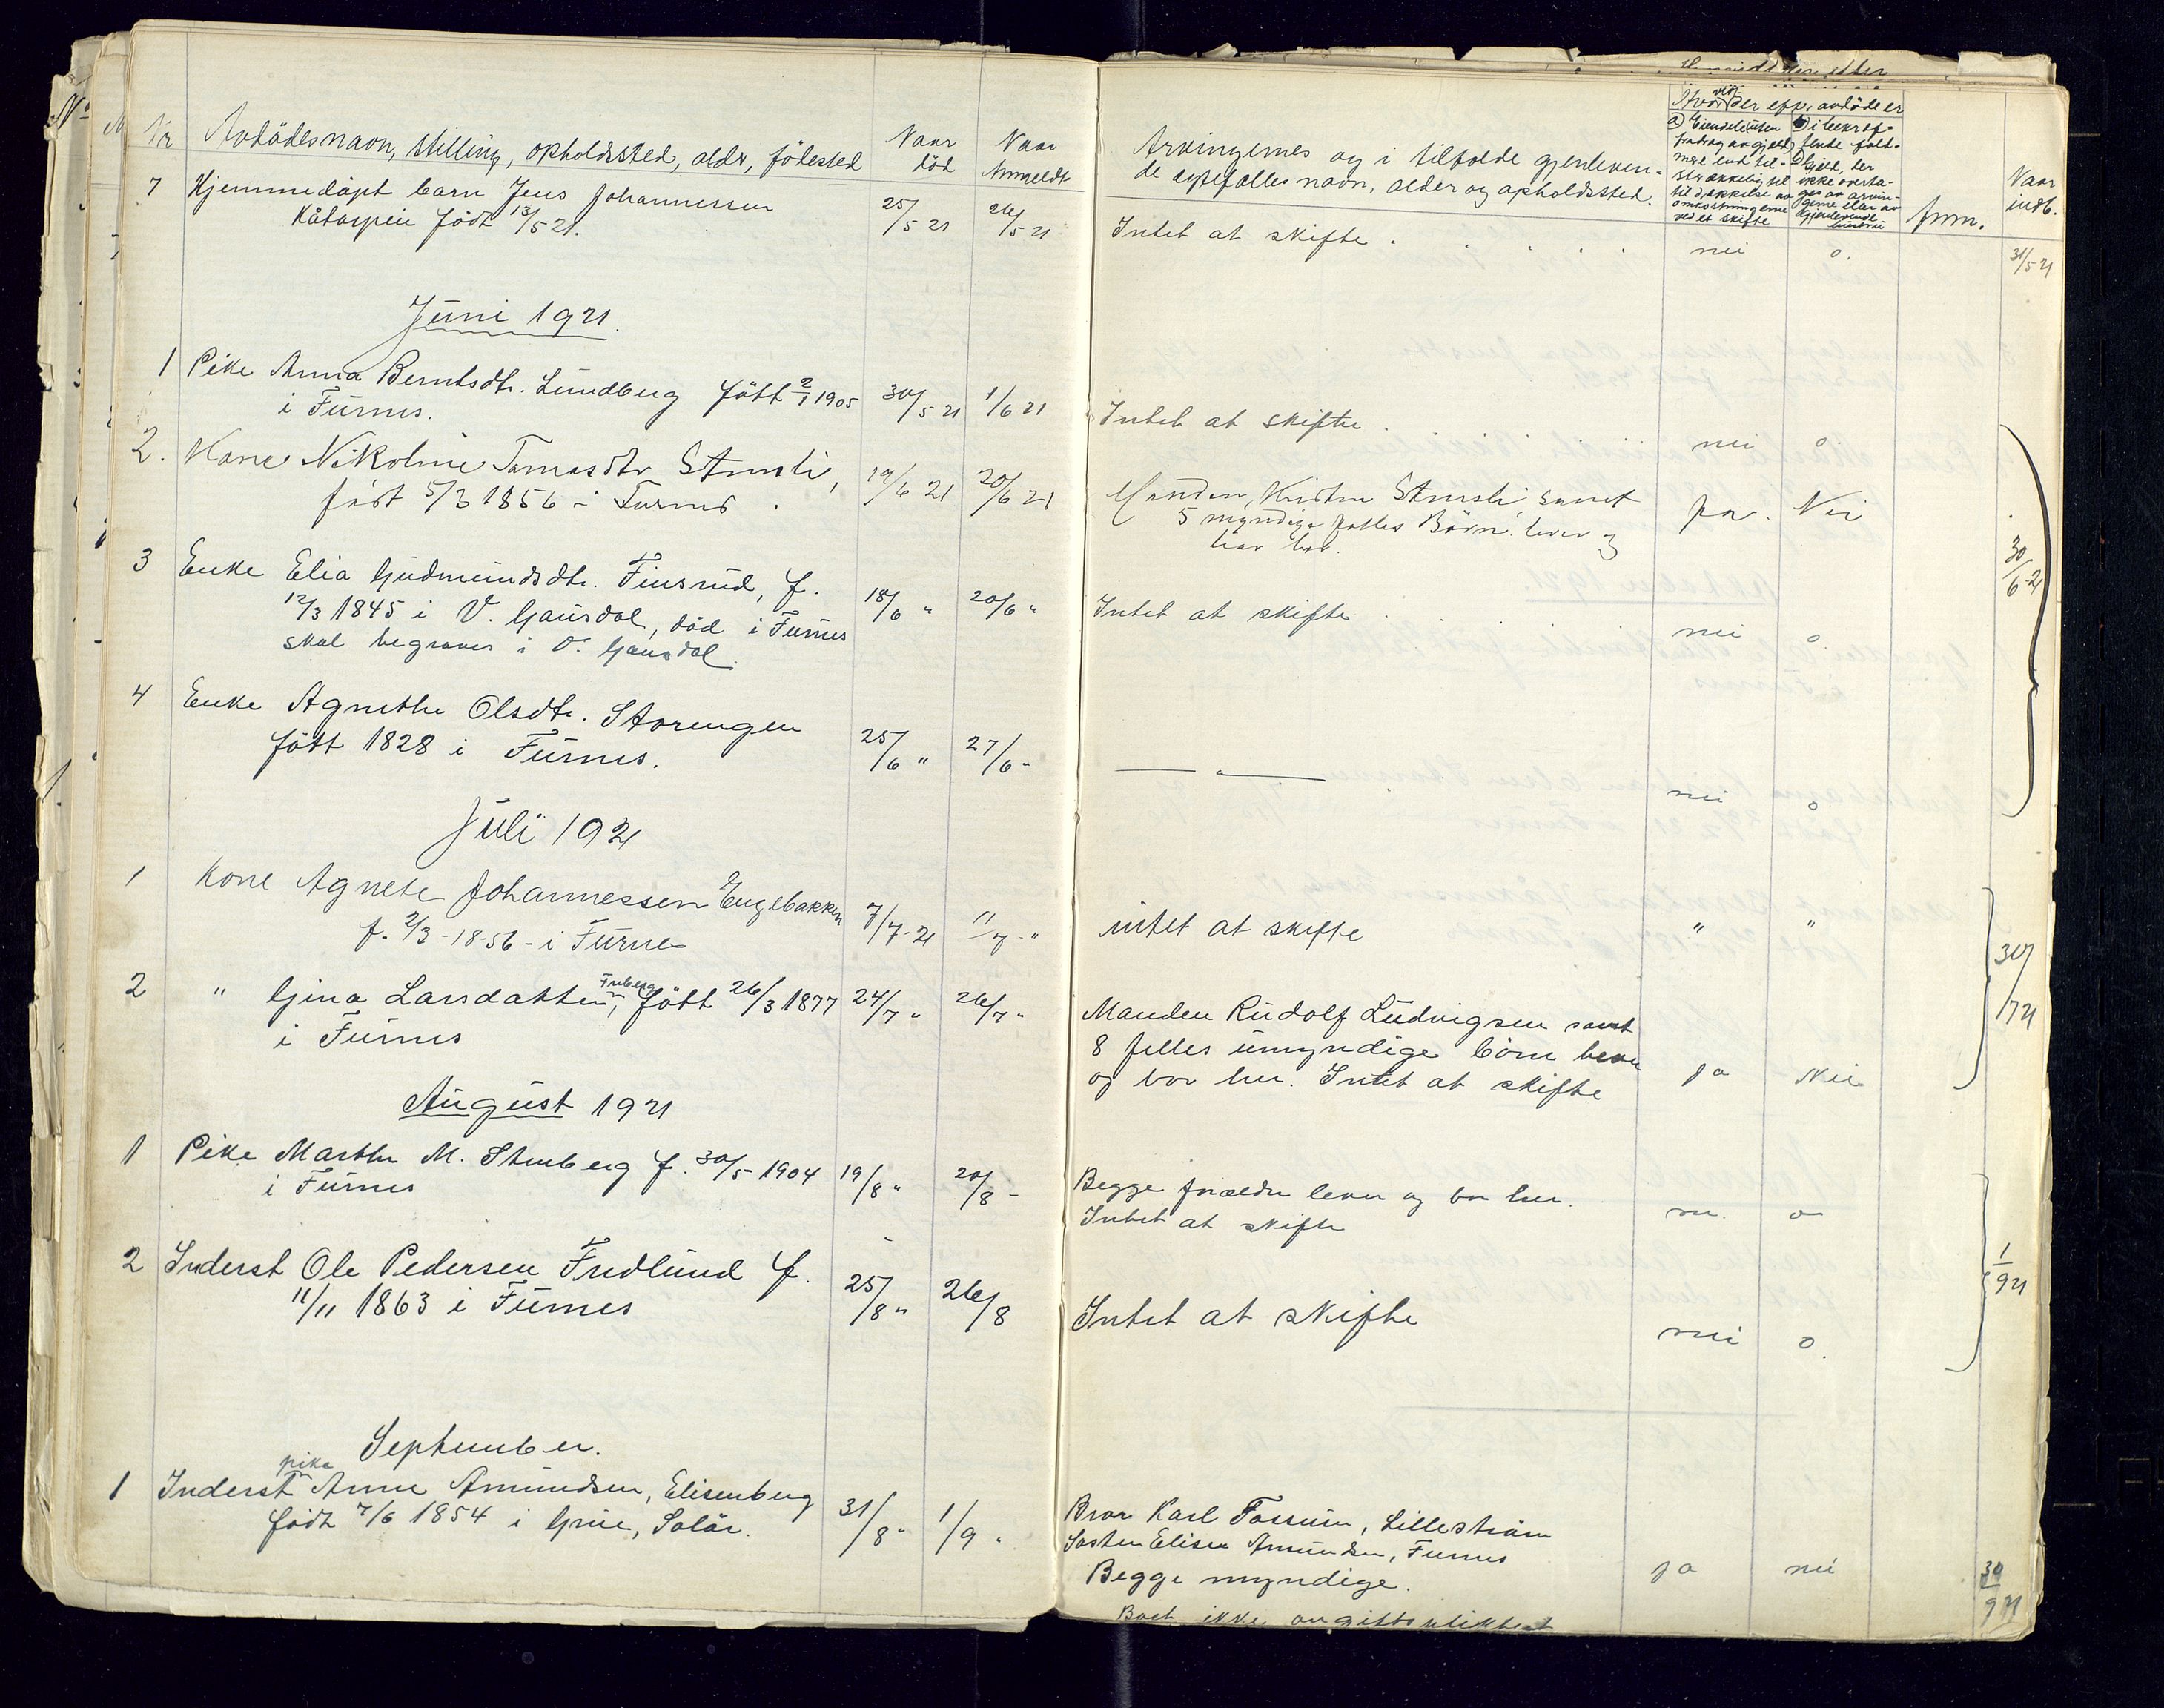 Nr Avdödes navn, stilling, opholdssted, alder, födested Naar död Naar Anmeldt
7 Hjemmedöpt barn Jens Johannessen 25/5 21 26/5 21
födt 13/5 21.
Juni 1921.
1 Pike Anna Berntsdtr. Lundberg född 2/1 1905 30/5 21 1/6 21
i Furnes.
2. Kone Nikoline Tomasdtr 20/6 21
född 5/3 1856 i Furnes
3 Enke Elia Gudmundsdtr. Finsrud, f. 18/6 " 20/6 "
12/3 1845 i V. Gausdal, död i Furnes
skal begraves i V. Gausdal.
4 Enke Agnethe Olsdtr. Storengen 25/6 " 27/6 "
född 1828 i Furnes.
Juli 1921
1 Kone Agnete Johannessen Engebakken 7/7-21 11/7-"
f. 2/3-1856-i Furnes
2 " Gina Larsdatter, född 26/3 1877 24/7 " 26/7 "
i Furnes
August 1921
1 Pike Marthe M. Stenberg f. 30/5 1904 19/8 " 20/8 -
i Furnes
2 Inderst Ole Pedersen Fredlund f. 25/8 " 26/8
11/11 1863 i Furnes
September.
pike
1 Inderst Anne Amundsen, Elisenberg 31/8 " 1/9 "
födt 7/6 1854 i Grue, Solör.
Arvingernes og i tilfelde gjenleven-
de ektefelles navn, alder og opholdssted.
Hvorvidt der efter avdöde er
a) Eiendele uten
fradrag av gjæld,
mere end til-
strækkelig til
til dækkelse av
omkostningerne
ved et skifte
b) i bekræf-
tende fald-
Gjæld, der
ikke overta-
ges av arvin-
gerne eller av
gjenlevende
Anm.
Naar
indb.
Intet at skifte . nei o. 31/5 21
Intet at skifte . nei o
Manden, Kristen samt ja. Nei
5 myndige felles Börn lever og
30/6-21
Intet at skifte . nei o
— " — nei o
intet at skifte " "
30/7 21
Manden Rudolf Ludvigsen samt
8 felles umyndige börn lever
og bor her. Intet at skifte ja nei
Begge forældre lever og bor her.
Intet at skifte nei o
1/9 21
Intet at skifte nei o.
Bror Karl Fossum, Lilleström
Söster Elise Amundsen, Furnes
Begge myndige. ja nei 30/9 21
Boet ikke avgiftspliktigt